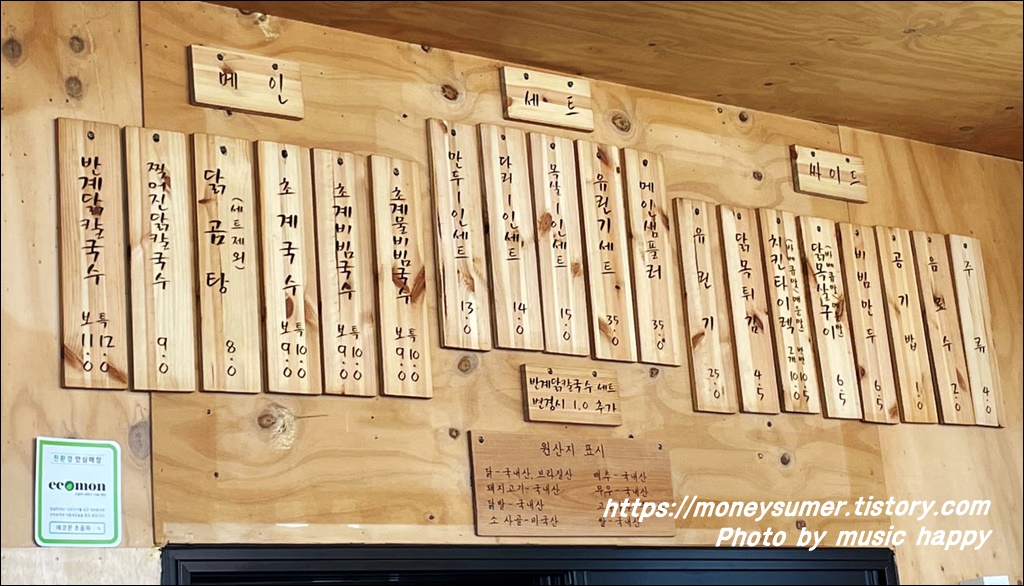 메인
반계닭칼국수 보 11.0 특 12.0
찢어진닭칼국수 9.0
닭곰탕 (세트제외) 8.0
초계국수 보 9.0 특 10.0
초계비빔국수 보 9.0 특 10.0
초계물비빔국수 보 9.0 특 10.0
세트
만두1인세트 13.0
다리1인세트 14.0
목살1인세트 15.0
유린기세트 35.0
메인샘플러 35.0
반계닭칼국수 세트
변경시 1.0 추가
싸이드
유린기 25.0
닭목튀김 4.5
치킨타이렉 2개 10.0 반반 10.5
닭목살구이 6.5
비빔만두 6.5
공기밥 1.0
음료수 2.0
주류 4.0
원산지 표시
닭-국내산, 브라질산 배추-국내산
돼지고기-국내산
닭발-국내산
소 사골-미국산 쌀-국내산
친환경 안심매장
ecomon
에코몬 초음파
https://moneysumer.tistory.com
Photo by music happy